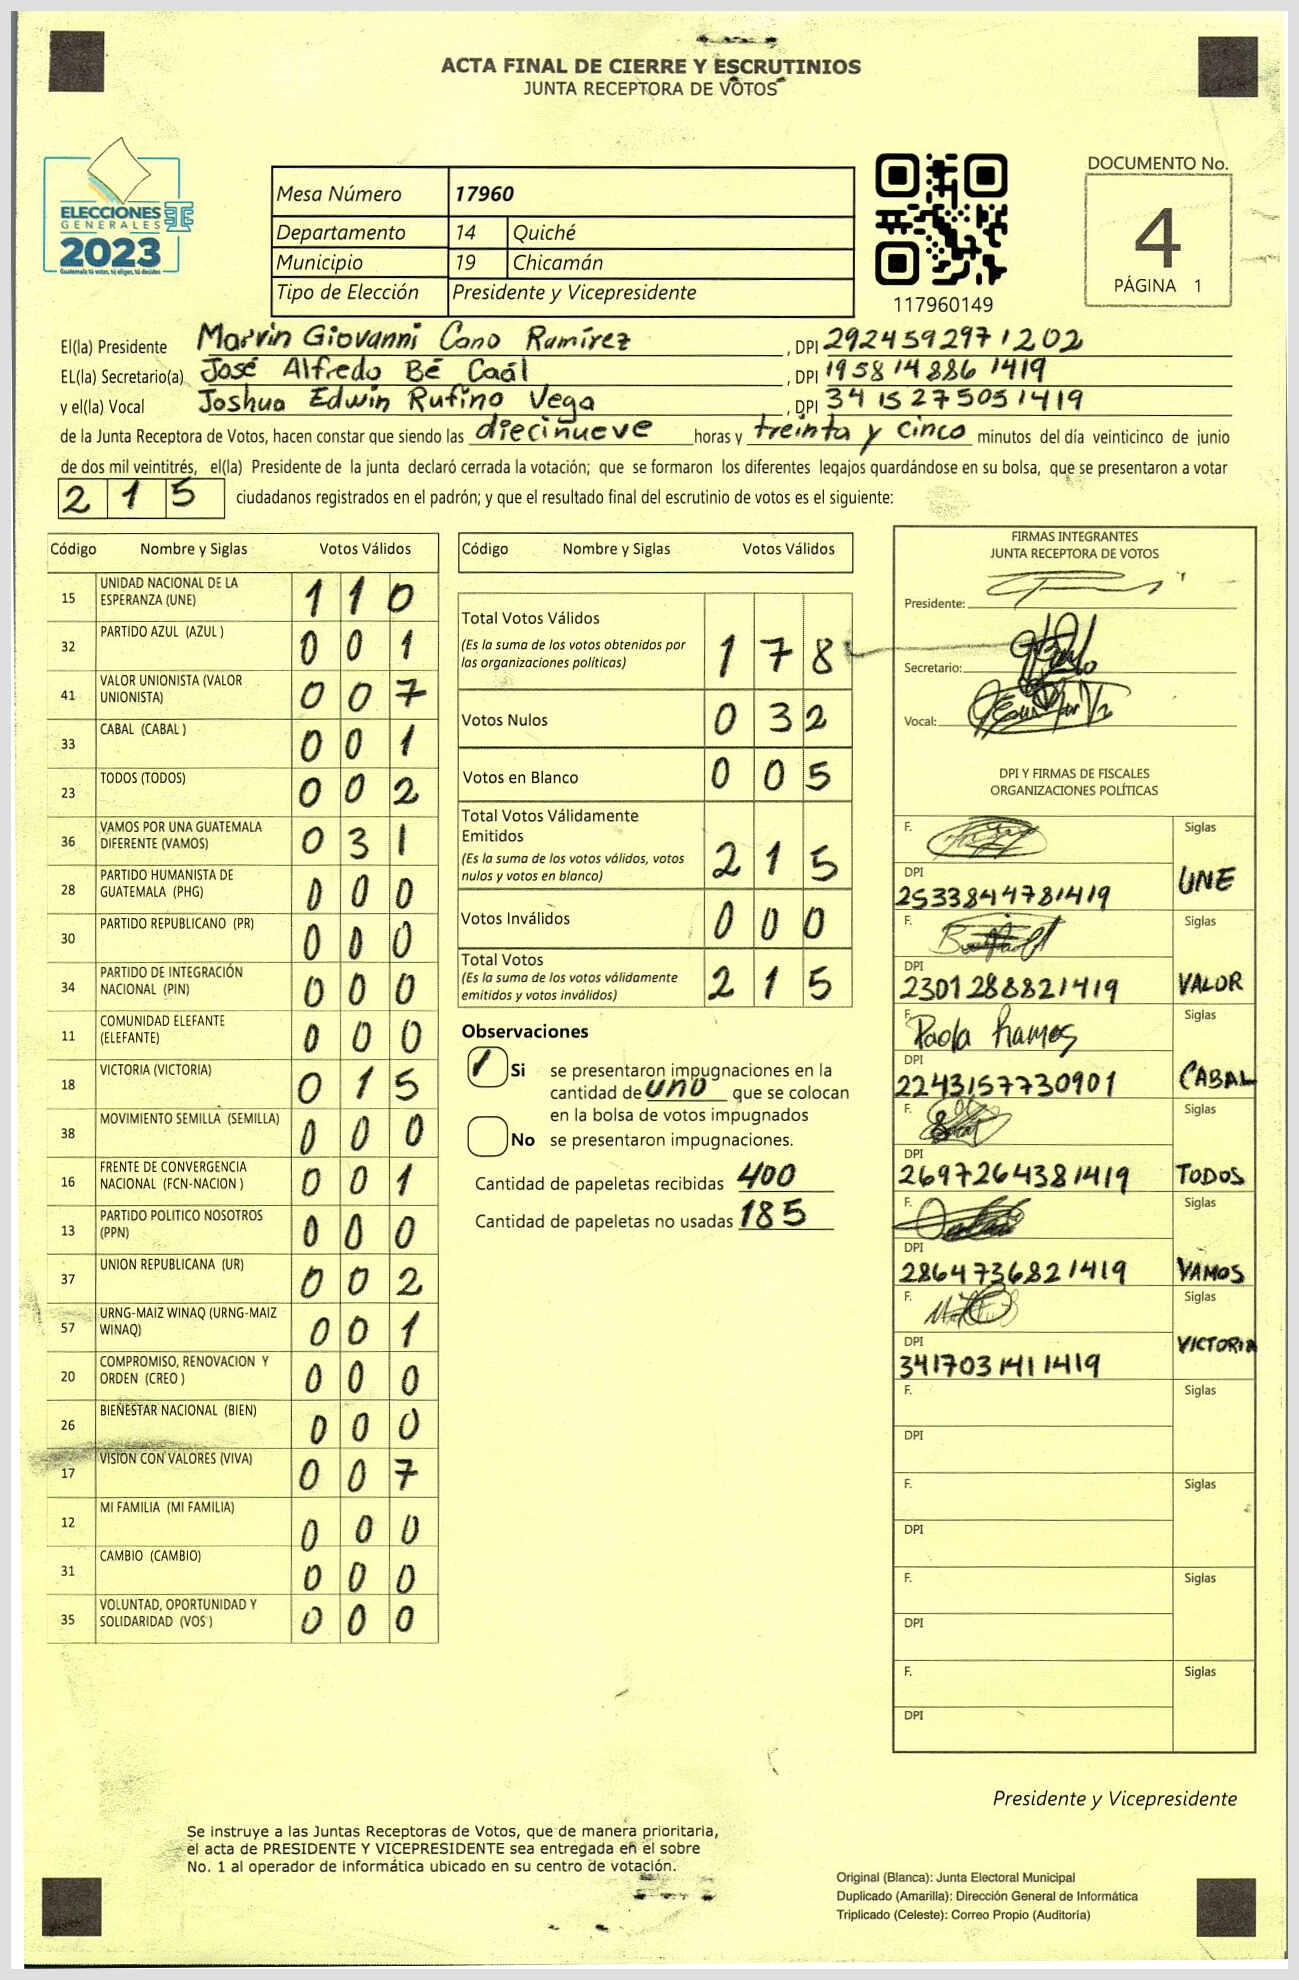 ACTA FINAL DE CIERRE Y ESCRUTINIOS
JUNTA RECEPTORA DE VOTOS
ELECCIONES
GENERALES
2023
Guatemala tú votas, tú eliges, tú decides
Mesa Número 17960
Departamento 14 Quiché
Municipio 19 Chicamán
Tipo de Elección Presidente y Vicepresidente
117960149
DOCUMENTO No.
4
PÁGINA 1
El(la) Presidente Marvin Giovanni Cano Ramírez, DPI 2924592971202
EL(la) Secretario(a) José Alfredo Bé Caál, DPI 1958148861419
y el(la) Vocal Joshua Edwin Rufino Vega, DPI 3415275051419
de la Junta Receptora de Votos, hacen constar que siendo las diecinueve horas y treinta y cinco minutos del día veinticinco de junio
de dos mil veintitrés, el(la) Presidente de la junta declaró cerrada la votación; que se formaron los diferentes legajos guardándose en su bolsa, que se presentaron a votar
215 ciudadanos registrados en el padrón; y que el resultado final del escrutinio de votos es el siguiente:
Código Nombre y Siglas Votos Válidos
15 UNIDAD NACIONAL DE LA ESPERANZA (UNE) 110
32 PARTIDO AZUL (AZUL ) 001
41 VALOR UNIONISTA (VALOR UNIONISTA) 007
33 CABAL (CABAL ) 001
23 TODOS (TODOS) 002
36 VAMOS POR UNA GUATEMALA DIFERENTE (VAMOS) 031
28 PARTIDO HUMANISTA DE GUATEMALA (PHG) 000
30 PARTIDO REPUBLICANO (PR) 000
34 PARTIDO DE INTEGRACIÓN NACIONAL (PIN) 000
11 COMUNIDAD ELEFANTE (ELEFANTE) 000
18 VICTORIA (VICTORIA) 015
38 MOVIMIENTO SEMILLA (SEMILLA) 000
16 FRENTE DE CONVERGENCIA NACIONAL (FCN-NACION ) 001
13 PARTIDO POLITICO NOSOTROS (PPN) 000
37 UNION REPUBLICANA (UR) 002
57 URNG-MAIZ WINAQ (URNG-MAIZ WINAQ) 001
20 COMPROMISO, RENOVACION Y ORDEN (CREO ) 000
26 BIENESTAR NACIONAL (BIEN) 000
17 VISION CON VALORES (VIVA) 007
12 MI FAMILIA (MI FAMILIA) 000
31 CAMBIO (CAMBIO) 000
35 VOLUNTAD, OPORTUNIDAD Y SOLIDARIDAD (VOS ) 000
Código Nombre y Siglas Votos Válidos
Total Votos Válidos 178
(Es la suma de los votos obtenidos por
las organizaciones políticas)
Votos Nulos 032
Votos en Blanco 005
Total Votos Válidamente
Emitidos 215
(Es la suma de los votos válidos, votos
nulos y votos en blanco)
Votos Inválidos 000
Total Votos 215
(Es la suma de los votos válidamente
emitidos y votos inválidos)
Observaciones
Si se presentaron impugnaciones en la
cantidad de uno que se colocan
en la bolsa de votos impugnados
No se presentaron impugnaciones.
Cantidad de papeletas recibidas 400
Cantidad de papeletas no usadas 185
FIRMAS INTEGRANTES
JUNTA RECEPTORA DE VOTOS
Presidente:
Secretario:
Vocal:
DPI Y FIRMAS DE FISCALES
ORGANIZACIONES POLÍTICAS
F. Siglas
DPI UNE
2533844781419
F. Siglas
DPI VALOR
2301288821419
F. Paola Ramos Siglas
DPI CABAL
2243157730901
F. Siglas
DPI TODOS
2697264381419
F. Siglas
DPI VAMOS
2864736821419
F. Siglas
DPI VICTORIA
3417031411419
F. Siglas
DPI
F. Siglas
DPI
F. Siglas
DPI
F. Siglas
DPI
Presidente y Vicepresidente
Se instruye a las Juntas Receptoras de Votos, que de manera prioritaria,
el acta de PRESIDENTE Y VICEPRESIDENTE sea entregada en el sobre
No. 1 al operador de informática ubicado en su centro de votación.
Original (Blanca): Junta Electoral Municipal
Duplicado (Amarilla): Dirección General de Informática
Triplicado (Celeste): Correo Propio (Auditoría)